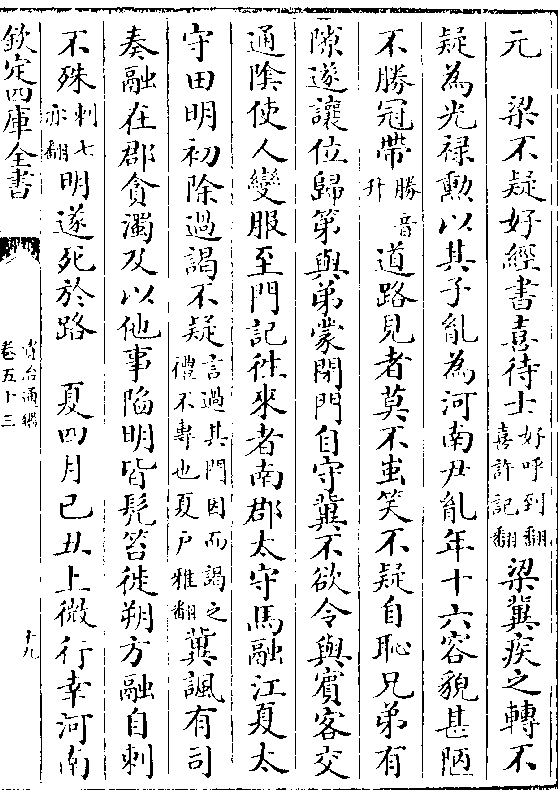 元　梁不疑好經書喜待士好呼到翻喜許記翻梁冀疾之轉不
疑為光禄勲以其子𦙍為河南尹𦙍年十六容貌甚陋
不勝冠帶勝音升道路見者莫不蚩笑不疑自恥兄弟有
隙遂讓位歸第與弟蒙閉門自守冀不欲令與賓客交
通隂使人變服至門記徃來者南郡太守馬融江夏太
守田明初除過謁不疑言過其門因而謁之禮不專也夏户雅翻冀諷有司
奏融在郡貪濁及以他事陷明皆髠笞徙朔方融自刺
不殊刺七亦翻明遂死於路　夏四月己丑上微行幸河南
欽定四庫全書
資治通鑑
卷五十三
十九